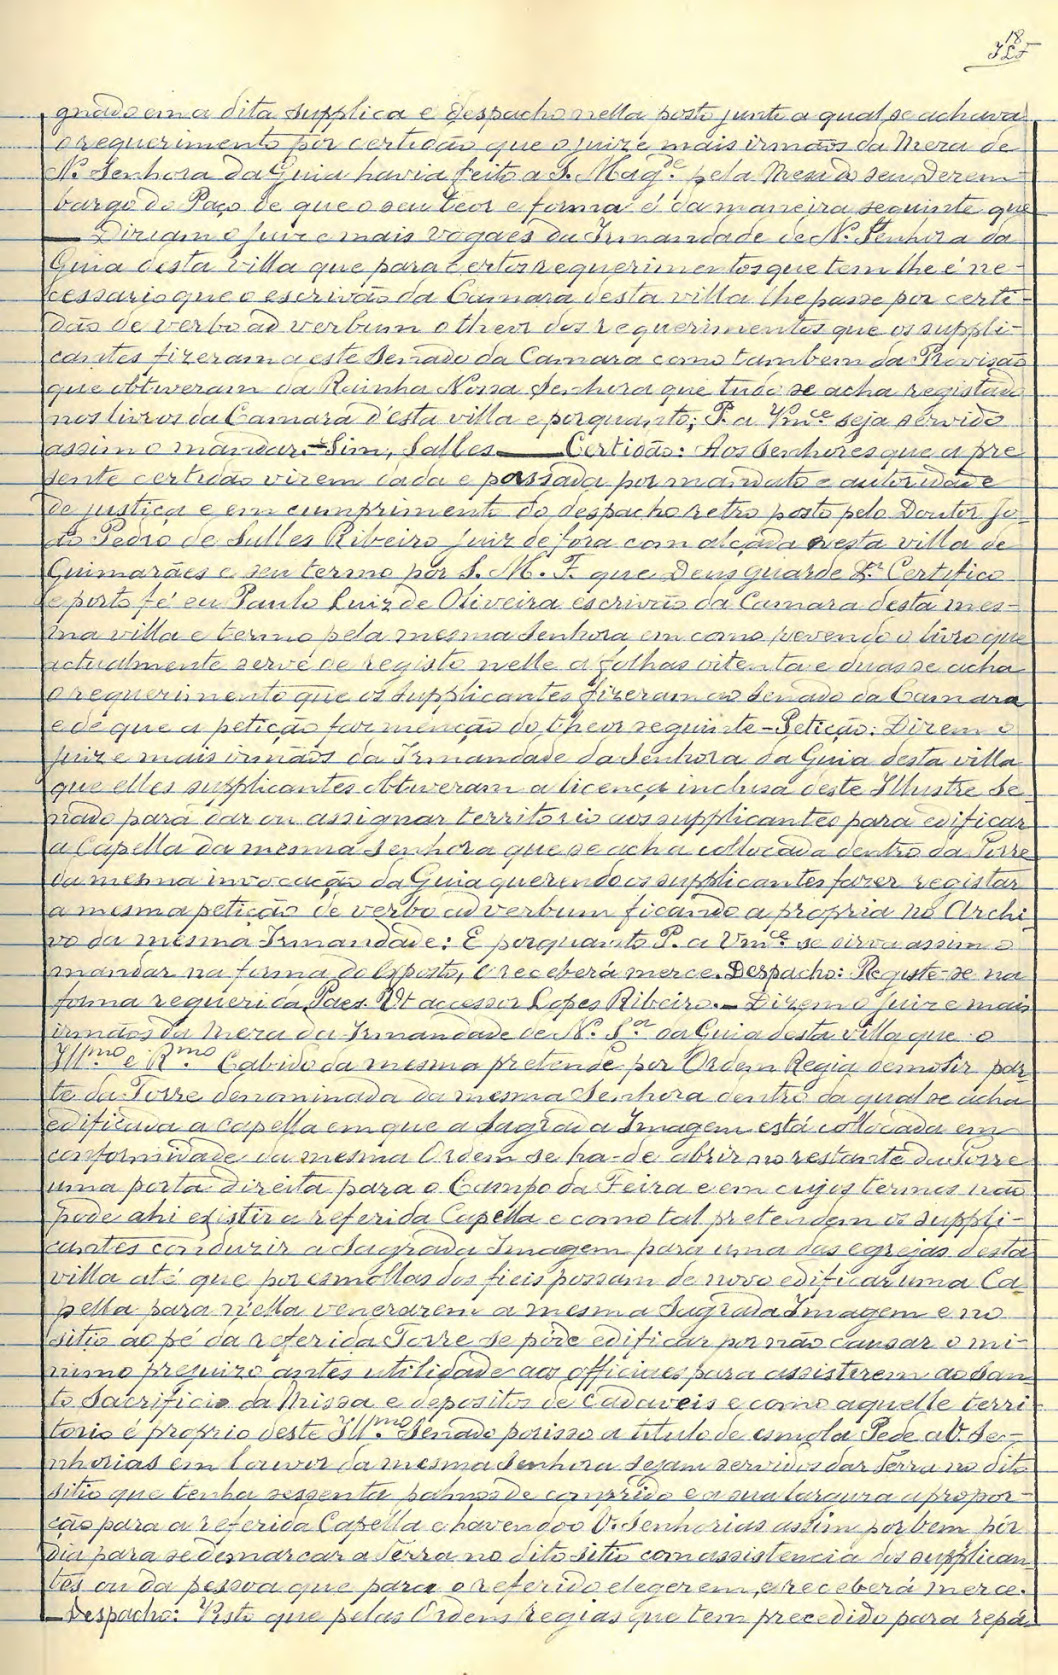 18
gnado em a dita supplica e despacho nella posto junto a qual se achava
o requerimento por certidão que o juiz e mais irmãos da Meza de
N. Senhora da Guia havia feito a S. Mag.de pela Meza do seu Dezem-
bargo do Paço de que o seu teor e forma é da maneira seguinte que
— Diziam o Juiz e mais vogaes da Irmandade de N. Senhora da
Guia desta villa que para certos requerimentos que tem lhe é ne-
cessario que o escrivão da Camara desta villa lhe passe por certi-
dão de verbo ad verbum o theor dos requerimentos que os suppli-
cantes fizeram a este Senado da Camara como tambem da Provisão
que obtiveram da Rainha Nossa Senhora que tudo se acha registado
nos livros da Camara d'esta villa e porquanto; P. a Vm.ce seja servido
assim o mandar. — Sim, Salles — Certidão: Aos Senhores que a pre
sente certidão virem dada e passada por mandato e autoridade
de justiça e em cumprimento do despacho retro posto pelo Doutor Jo-
ão Pedro de Salles Ribeiro Juiz de fora com alçada nesta villa de
Guimarães e seu termo por S. M. F. que Deus guarde Certifico
e porto fé eu Paulo Luiz de Oliveira escrivão da Camara desta mes-
ma villa e termo pela mesma Senhora em como revendo o livro que
actualmente serve de registo nelle a folhas oitenta e duas se acha
o requerimento que os supplicantes fizeram ao Senado da Camara
e de que a petição faz menção do theor seguinte - Petição: Dizem o
Juiz e mais irmãos da Irmandade da Senhora da Guia desta villa
que elles supplicantes obtiveram a licença inclusa deste Illustre Se-
nado para dar ou assignar territorio aos supplicantes para edificar
a Capella da mesma Senhora que se acha collocada dentro da Torre
da mesma invocação da Guia querendo os supplicantes fazer registar
a mesma petição de verbo ad verbum ficando a propria no Archi-
vo da mesma Irmandade: E porquanto P. a Vm.ce se sirva assim o
mandar na forma do Exposto, E receberá merce. Despacho: Registe-se na
forma requerida, Paes. Vt accessor Lopes Ribeiro. — Dizem o Juiz e mais
irmãos da Meza da Irmandade de N. S.ra da Guia desta villa que o
Ill.mo e R.mo Cabido da mesma pretende por Ordem Regia demolir par-
te da Torre denominada da mesma Senhora dentro da qual se acha
edificada a capella em que a Sagrada Imagem está collocada em
conformidade da mesma Ordem se ha-de abrir no restante da Torre
uma porta direita para o Campo da Feira e em cujos termos não
pode ahi existir a referida Capella e como tal pretendem os suppli-
cantes conduzir a Sagrada Imagem para uma das egrejas desta
villa até que por esmollas dos fieis possam de novo edificar uma Ca
pella para n'ella venerarem a mesma Sagrada Imagem e no
sitio ao pé da referida Torre se pode edificar por não causar o mi-
nimo prejuizo antes utilidade aos officiaes para assistirem ao San-
to Sacrificio da Missa e depositos de Cadaveis e como aquelle terri-
torio é proprio deste Ill.mo Senado porisso a titulo de esmola Pede a V. Se-
nhorias em louvor da mesma Senhora sejam servidos dar Terra no dito
sitio que tenha sessenta palmos de comprido e a sua largura a propor-
ção para a referida Capella e havendo o V. Senhorias assim por bem pôr
dia para se demarcar a Terra no dito sitio com assistencia dos supplican-
tes ou da pessoa que para o referido elegerem, e receberá merce.
— Despacho: Visto que pelas Ordens regias que tem precedido para repa-